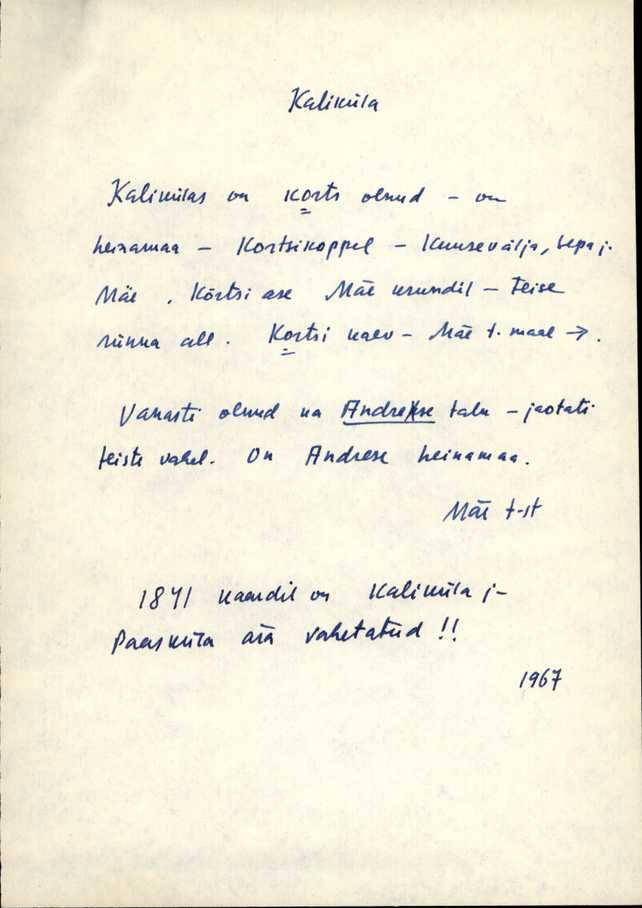 Kaliküla
Kalikülas on korts olnud – on
heinamaa – Kortsikoppel – Kuusevälja, Sepa j.
Mäe . Kõrtsi ase Mäe krundil – teise
künka all. Kortsi kaev – Mäe t. maal →.
Vanasti olnud ka Andrekse talu – jaotati
teiste vahel. On Andrese heinamaa.
Mäe t-st
1841 kaardil on Kaliküla j-
Paasküla ära vahetatud !!
1967